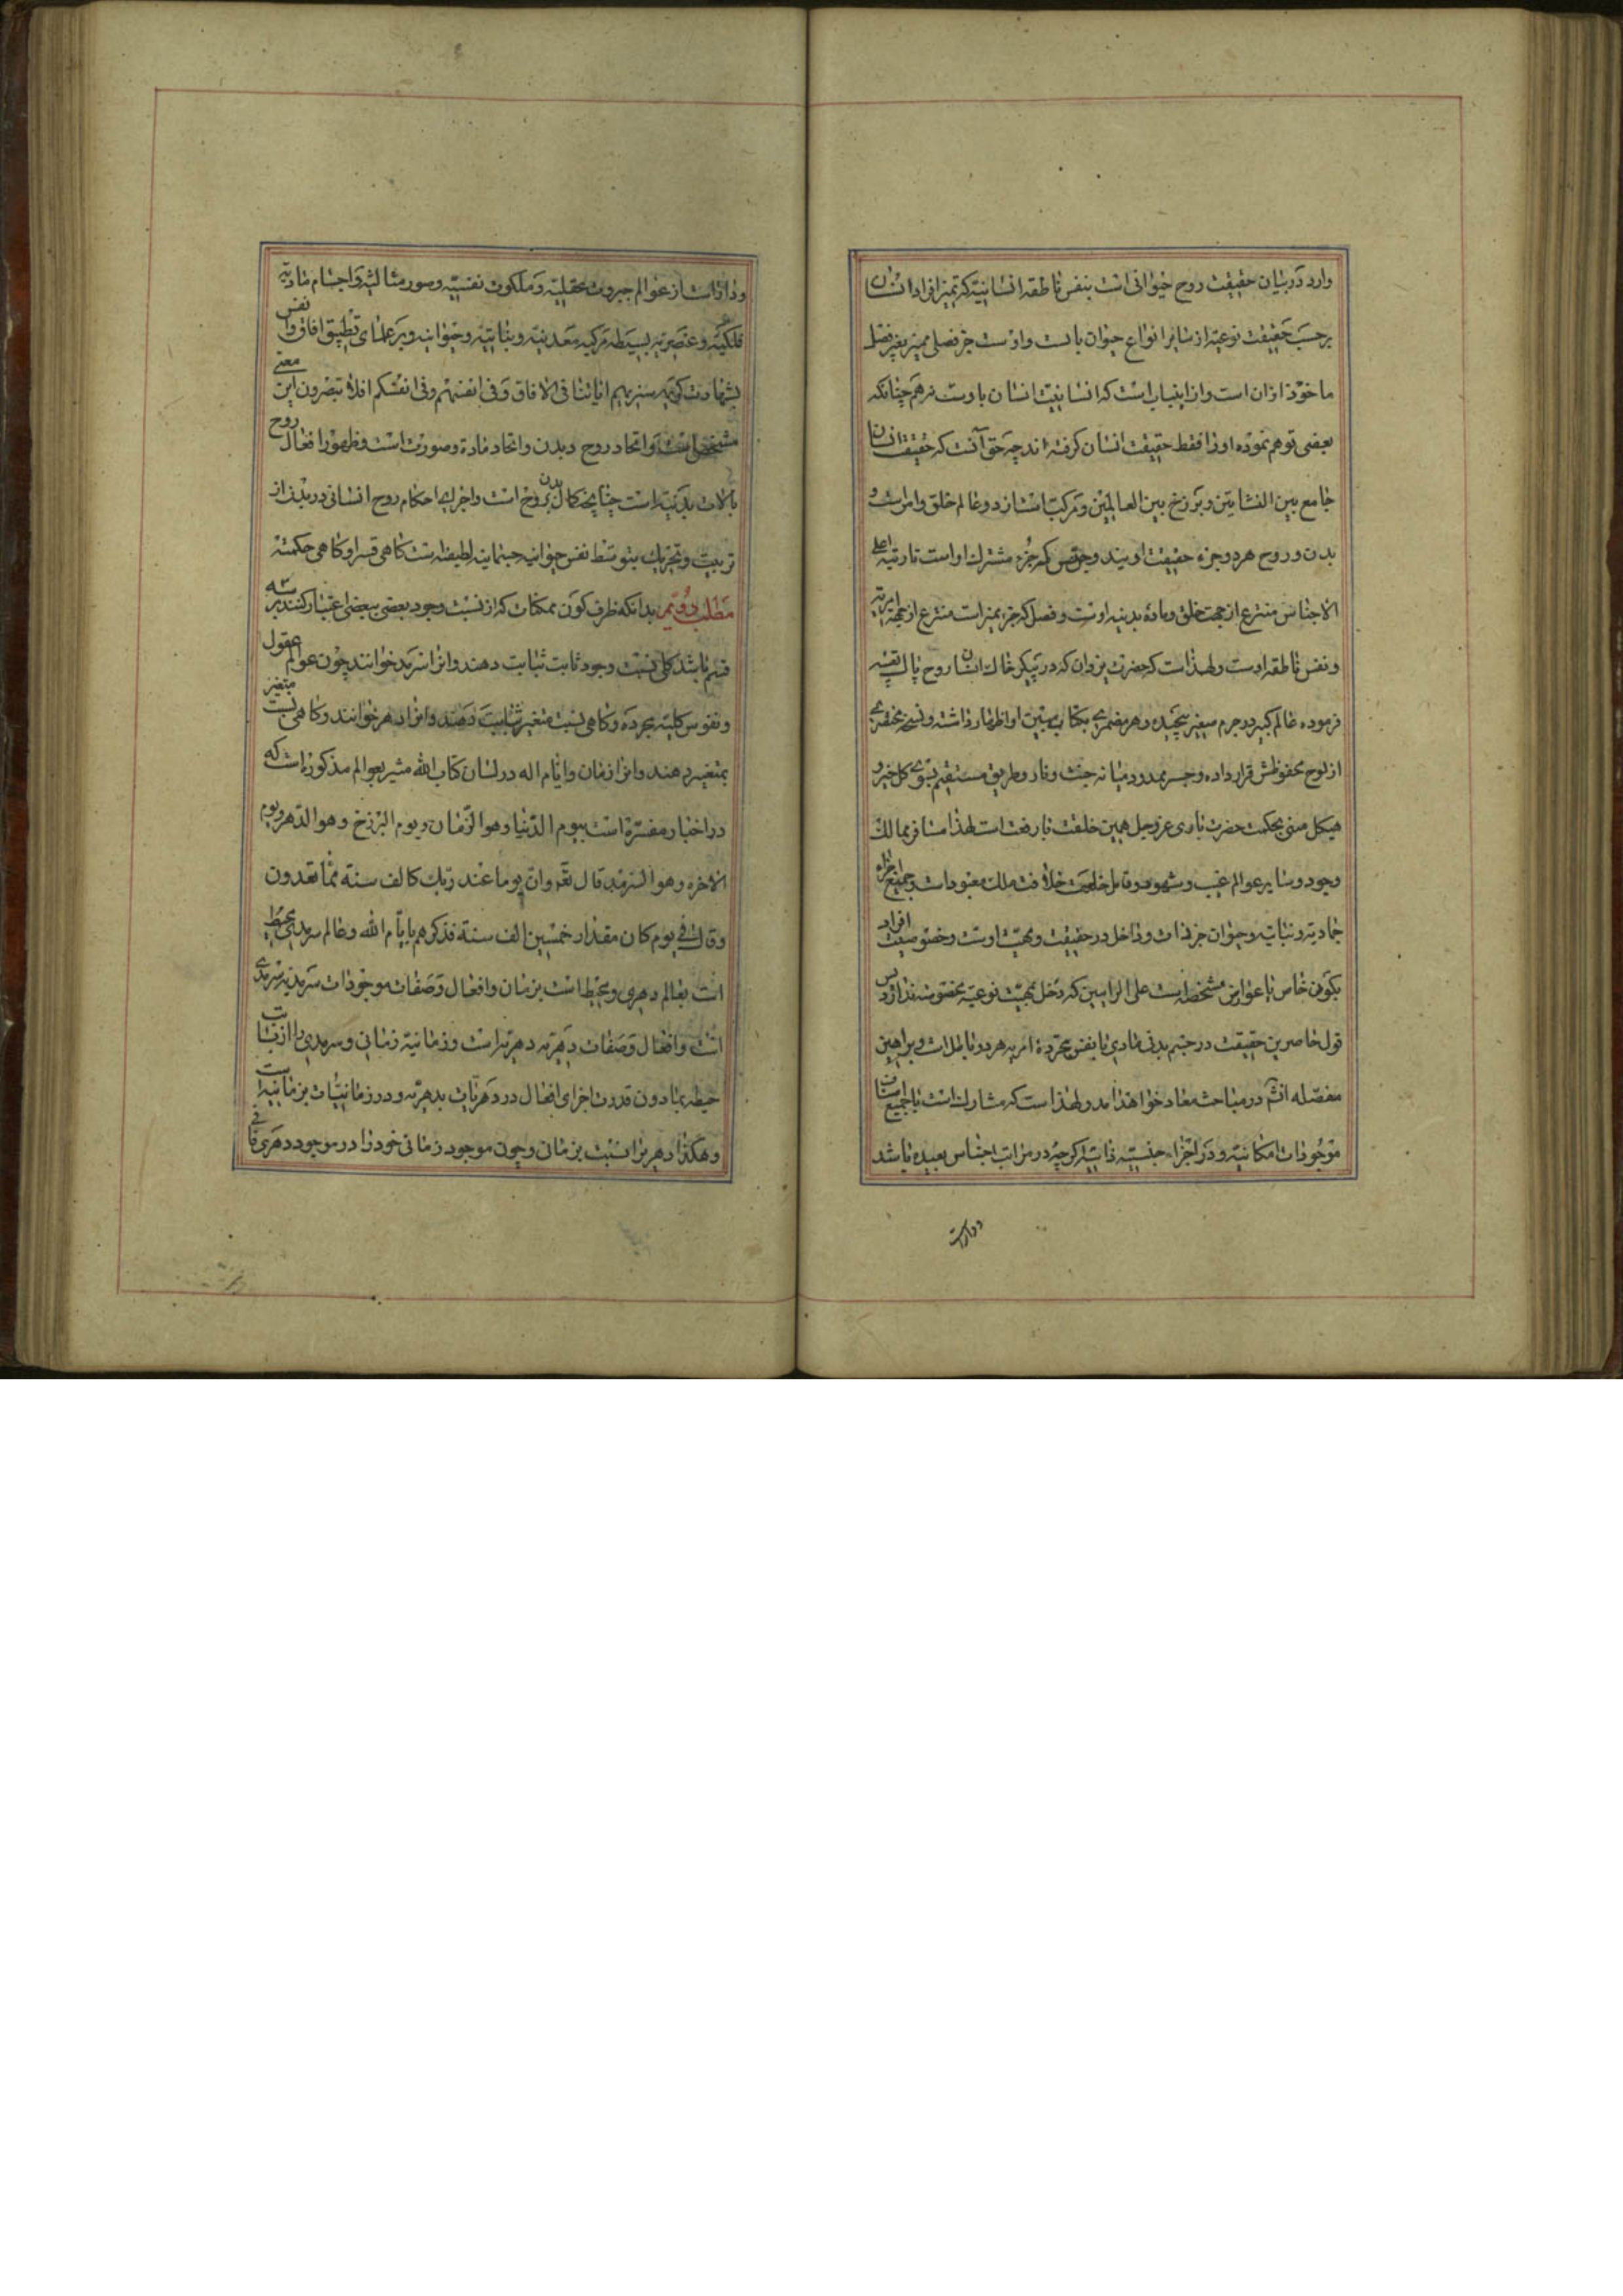 وارد در بیان حقیقت روح حیوانی است بنفس ناطقه انسانیته که تمیز افراد انسان
برحسب حقیقت نوعیّه از سایر انواع حیوان باوست و اوست جزء فصلی ممیز یعنی فصل
ماخوذ ازان است و از اینباب است که انسانیت انسان باوست نه همچنانکه
بعضی توهم نموده او را فقط حقیقت انسان گرفته اند چه حق آنست که حقیقت انسان
جامع بین النشاتین و برزخ بین العالمین و مرکب است از دو عالم خلق و امر است و
بدن و روح هر دو جزء حقیقت اویند و جنس که جزء مشترک او است تا رتبه اعلی
الاجناس منتزع از جهت خلق و ماده بدنیه اوست و فصل که جزء ممیز است منتزع از جهة امریه
و نفس ناطقه اوست و لهذا است که حضرت یزدان که در پیکر خاک انسان روح پاک تعبیه
فرموده عالم کبیر در جرم صغیر پیچیده و هر مضمری بکتاب مبین او اظهار داشته و نسخه مختصری
از لوح محفوظش قرار داده و جسر ممدود میانه جنت و نار و طریق مستقیم بسوی کل خیر و
هیکل مبنی بحکمت حضرت باری عز و جل همین خلقت با رفعت است لهذا مسافر ممالک
وجود و سایر عوالم غیب و شهود و قابل خلعت خلافت ملک معبود است و جمیع اجزاء
جمادیه و نباتیه و حیوان جزء ذات و داخل در حقیقت و مهیّت اوست و خصوصیت افراد
بکون خاص با عوارض مشخصه است علی الرایین که دخل بمهیّت نوعیّه بخصوصه ندارد پس
قول حاصرین حقیقت در جسم بدنی مادی یا بنفس مجرده امریه هر دو باطل است و براهین
مفصّله اش در مباحث معاد خواهد آمد و لهذا است که مشارک است با جمیع اصناف
موجودات امکانیه و در اجزاء جنسیّه ذاتیّه اگرچه در مراتب اجناس بعیده باشد
و دارا است
و داراست از عوالم جبروت عقلیّه و ملکوت نفسیّه و صور مثالیّه و اجسام مادیّه
فلکیّه و عنصریه بسیطه و مرکبه معدنیه و نباتیّه و حیوانیه و بر علمای تطبیق افاق و انفس
بشهادت کریمه سنریهم ایاتنا فی الافاق و فی انفسهم و فی انفسکم افلا تبصرون این معنی
مشخص است و اتحاد روح و بدن و اتحاد ماده و صورت است و ظهور افعال روح
بآلات بدنیه است چنانچه کمال بدن بروح است و اجرای احکام روح انسانی در بدن از
تربیت و تحریک بتوسط نفس حیوانیه جسمانیه لطیفه است گاهی قسرا و گاهی حکمته
مطلب دویّم بدانکه ظرف کون ممکنات که از نسبت وجود بعضی ببعضی اعتبار کنند بر سه
قسم باشد گاهی نسبت وجود ثابت بثابت دهند و انرا سرمد خوانند چون عوالم عقول
و نفوس کلیّه مجرده و گاهی نسبت متغیر بثابت دهند و انرا دهر خوانند و گاهی نسبت متغیر
بمتغیر دهند و انرا زمان و ایام اله در لسان کتاب الله مشیر بعوالم مذکوره است که
در اخبار مفسّره است بیوم الدّنیا و هو الزّمان و یوم البرزخ و هو الدّهر و یوم
الاخره و هو السّرمد قال تعالی و ان یوما عند ربک کالف سنة مما تعدون
و قال فی یوم کان مقداره خمسین الف سنة فذکرهم بایّام الله و عالم سرمدی محیط
است بعالم دهری و محیط است بزمان و افعال و صفات موجودات سرمدیه سرمدی
است و افعال و صفات دهریه دهریه است و زمانیة زمانی و سرمدی را از ثبات
حیطه بمادون قدرت اجرای افعال در دهریات بدهریّه و در زمانیّات بزمانیه است
و هکذا دهر را نسبت بزمان و چون موجود زمانی خود را در موجود دهری فانی